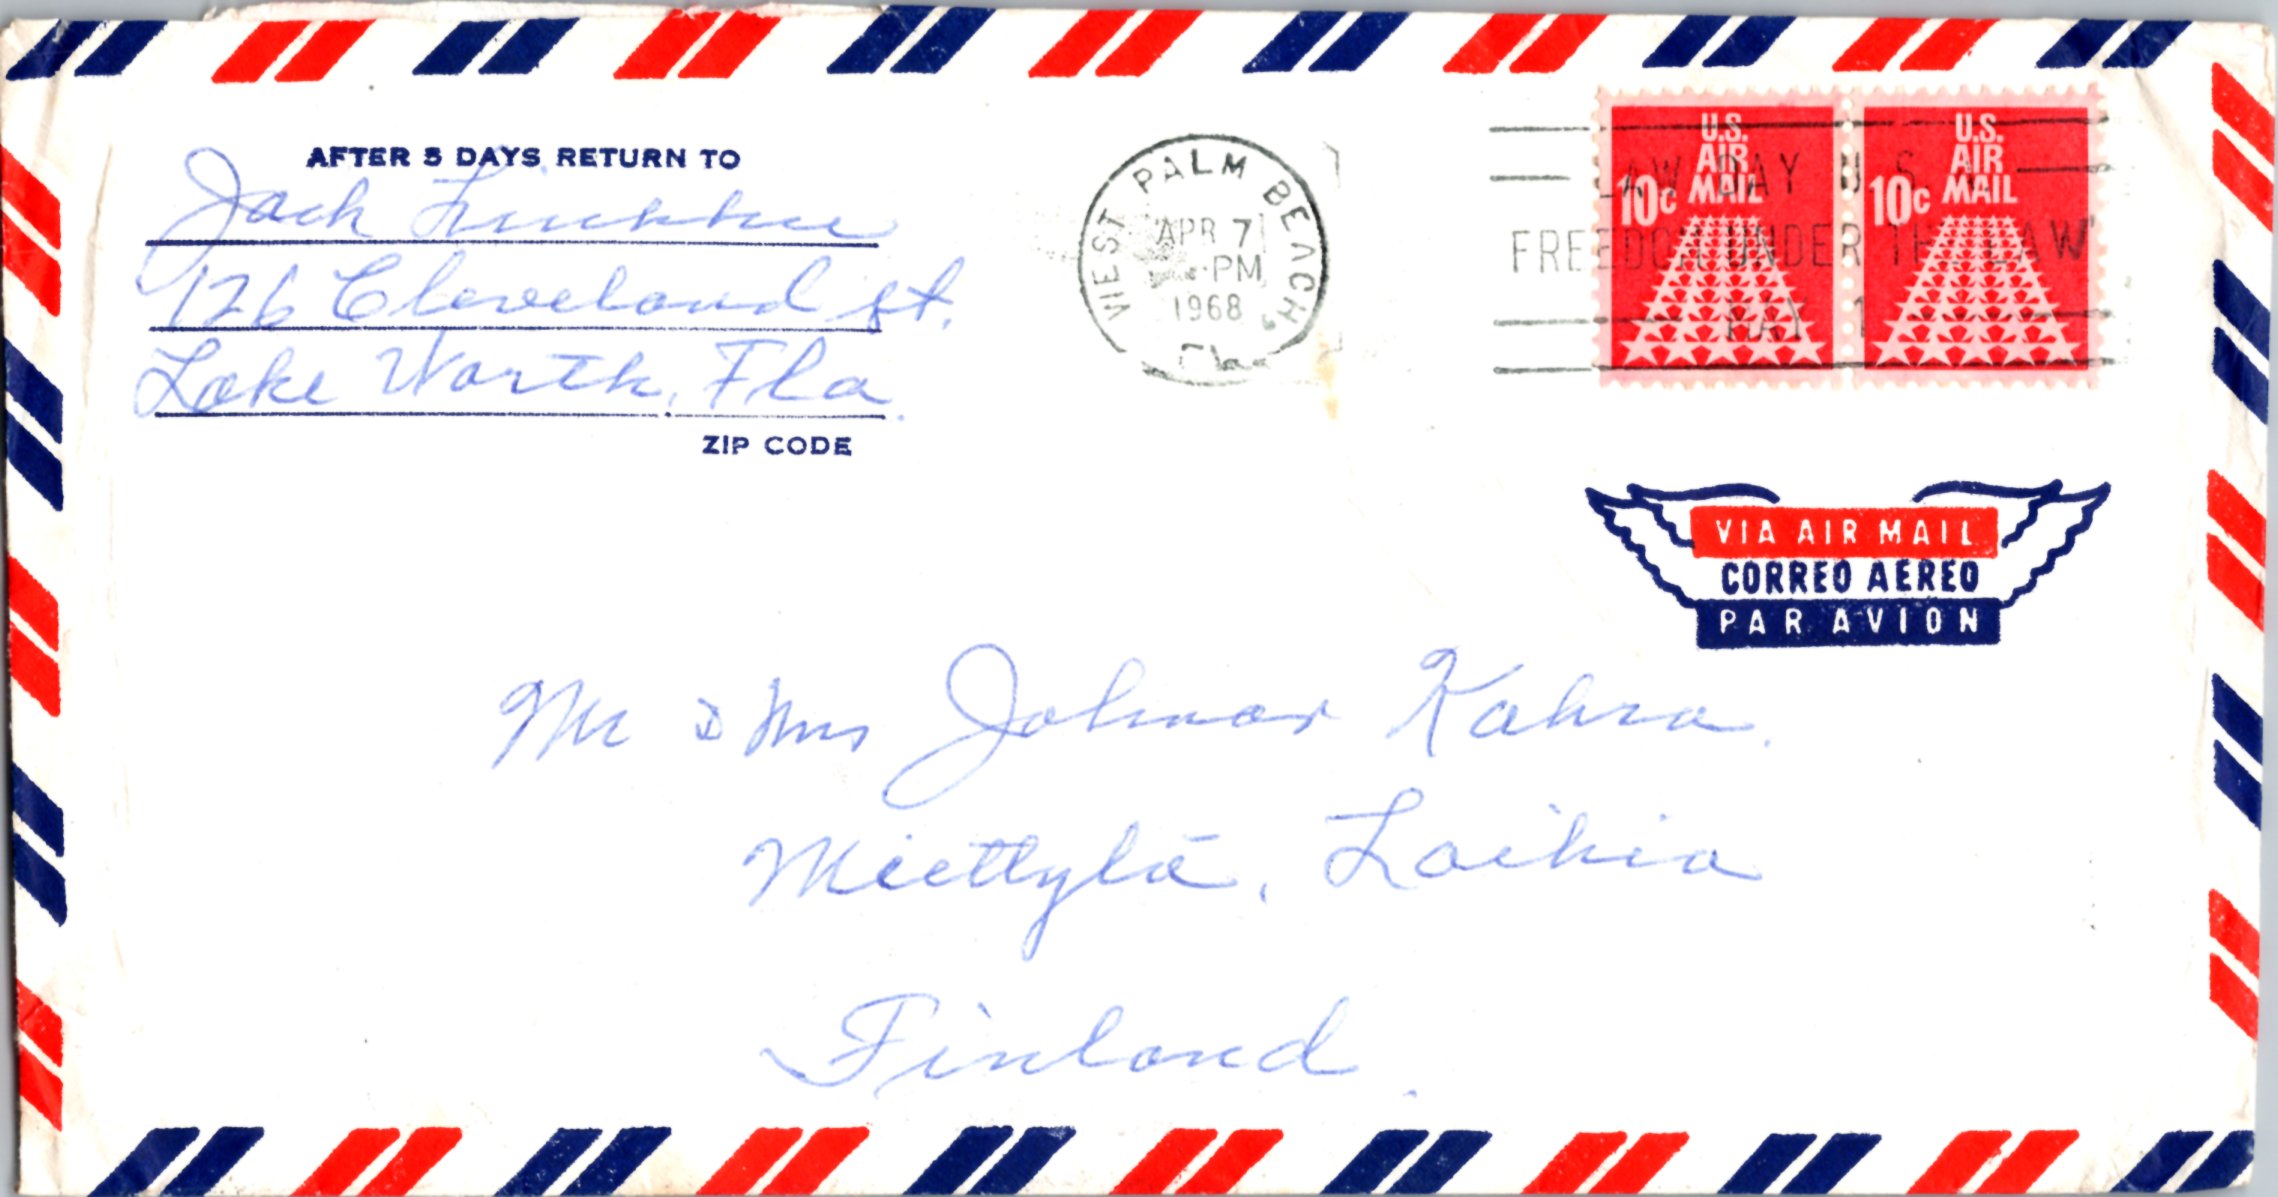 AFTER 5 DAYS RETURN TO
Jack
126 Cleveland St.
Lake Worth, Fla.
ZIP CODE
WEST PALM BEACH,
APR 7
PM
1968
Fla.
U.S.
AIR
MAIL
10c
U.S.
AIR
MAIL
10c
LAW DAY U.S.A.
FREEDOM UNDER THE LAW
MAY 1
VIA AIR MAIL
CORREO AEREO
PAR AVION
Mr & Mrs Johmar Kahra.
Miettylä, Laihia
Finland.